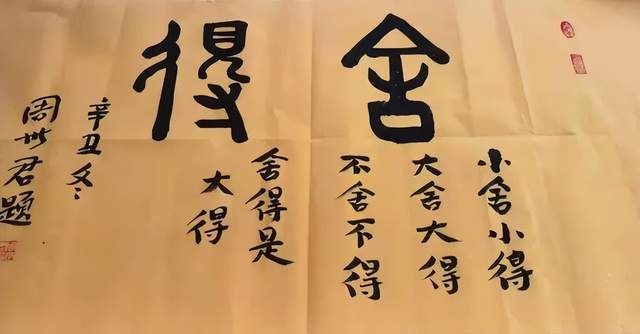 舍得
小舍小得
大舍大得
不舍不得
舍得是
大得
辛丑冬
周世君题